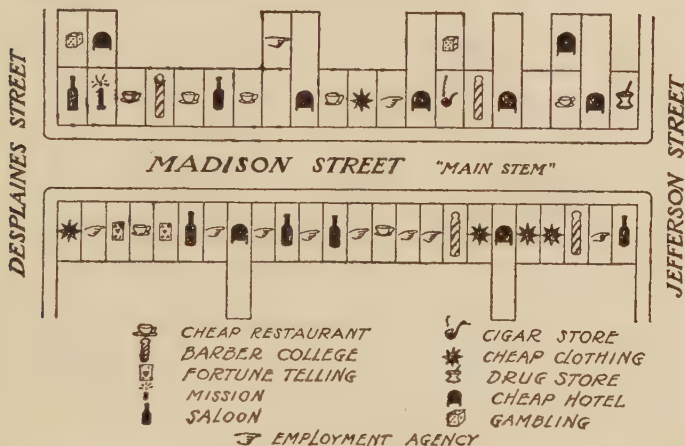 DESPLAINES STREET
MADISON STREET "MAIN STEM"
JEFFERSON STREET
CHEAP RESTAURANT
BARBER COLLEGE
FORTUNE TELLING
MISSION
SALOON
CIGAR STORE
CHEAP CLOTHING
DRUG STORE
CHEAP HOTEL
GAMBLING
EMPLOYMENT AGENCY